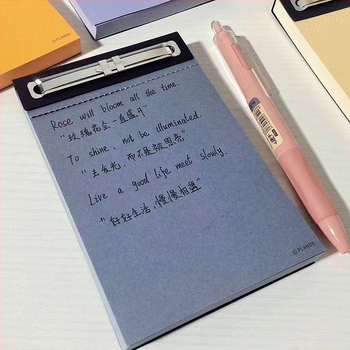 Rose will bloom all the time.
"玫瑰花会一直盛开"
To shine, not be illuminated.
"去发光，而不是被照亮"
Live a good life meet slowly.
"好好生活，慢慢相遇"
©PLANDE
©PLANDE